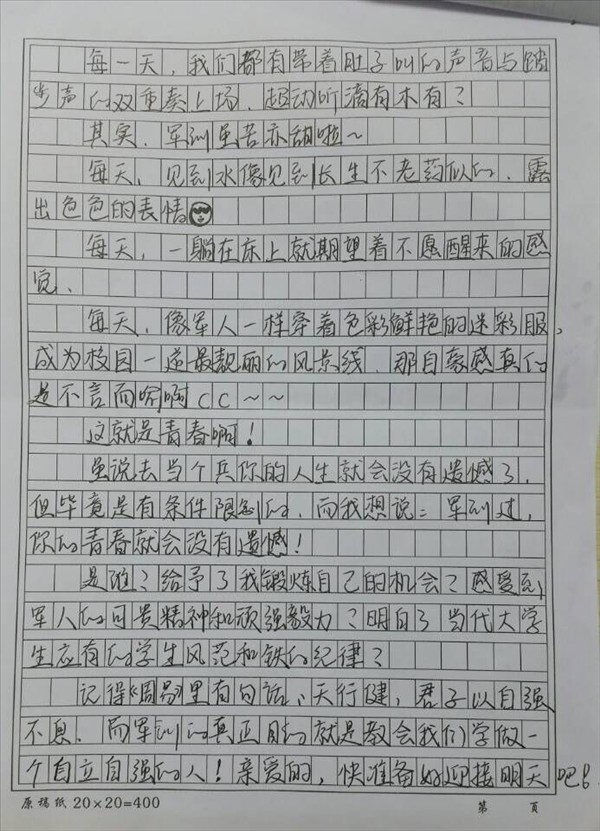 每一天，我们都有带着肚子叫的声音与踏
步声的双重奏上场、超动听滴有木有？
其实、军训虽苦亦甜啦~
每天，见到水像见到长生不老药似的、露
出色色的表情
每天，一躺在床上就期望着不愿醒来的感
觉、
每天，像军人一样穿着色彩鲜艳的迷彩服，
成为校园一道最靓丽的风景线、那自豪感真的
是不言而喻啊CC~~
这就是青春啊！
虽说去当个兵你的人生就会没有遗憾了，
但毕竟是有条件限制的、而我想说：军训过，
你的青春就会没有遗憾！
是谁？给予了我锻炼自己的机会？感受到
军人的可贵精神和顽强毅力？明白了当代大学
生应有的学生风范和铁的纪律？
记得《周易》里有句话、天行健，君子以自强
不息、而军训的真正目的就是教会我们学做一
个自立自强的人！亲爱的，快准备好迎接明天吧！
原稿纸 20×20=400 第 页